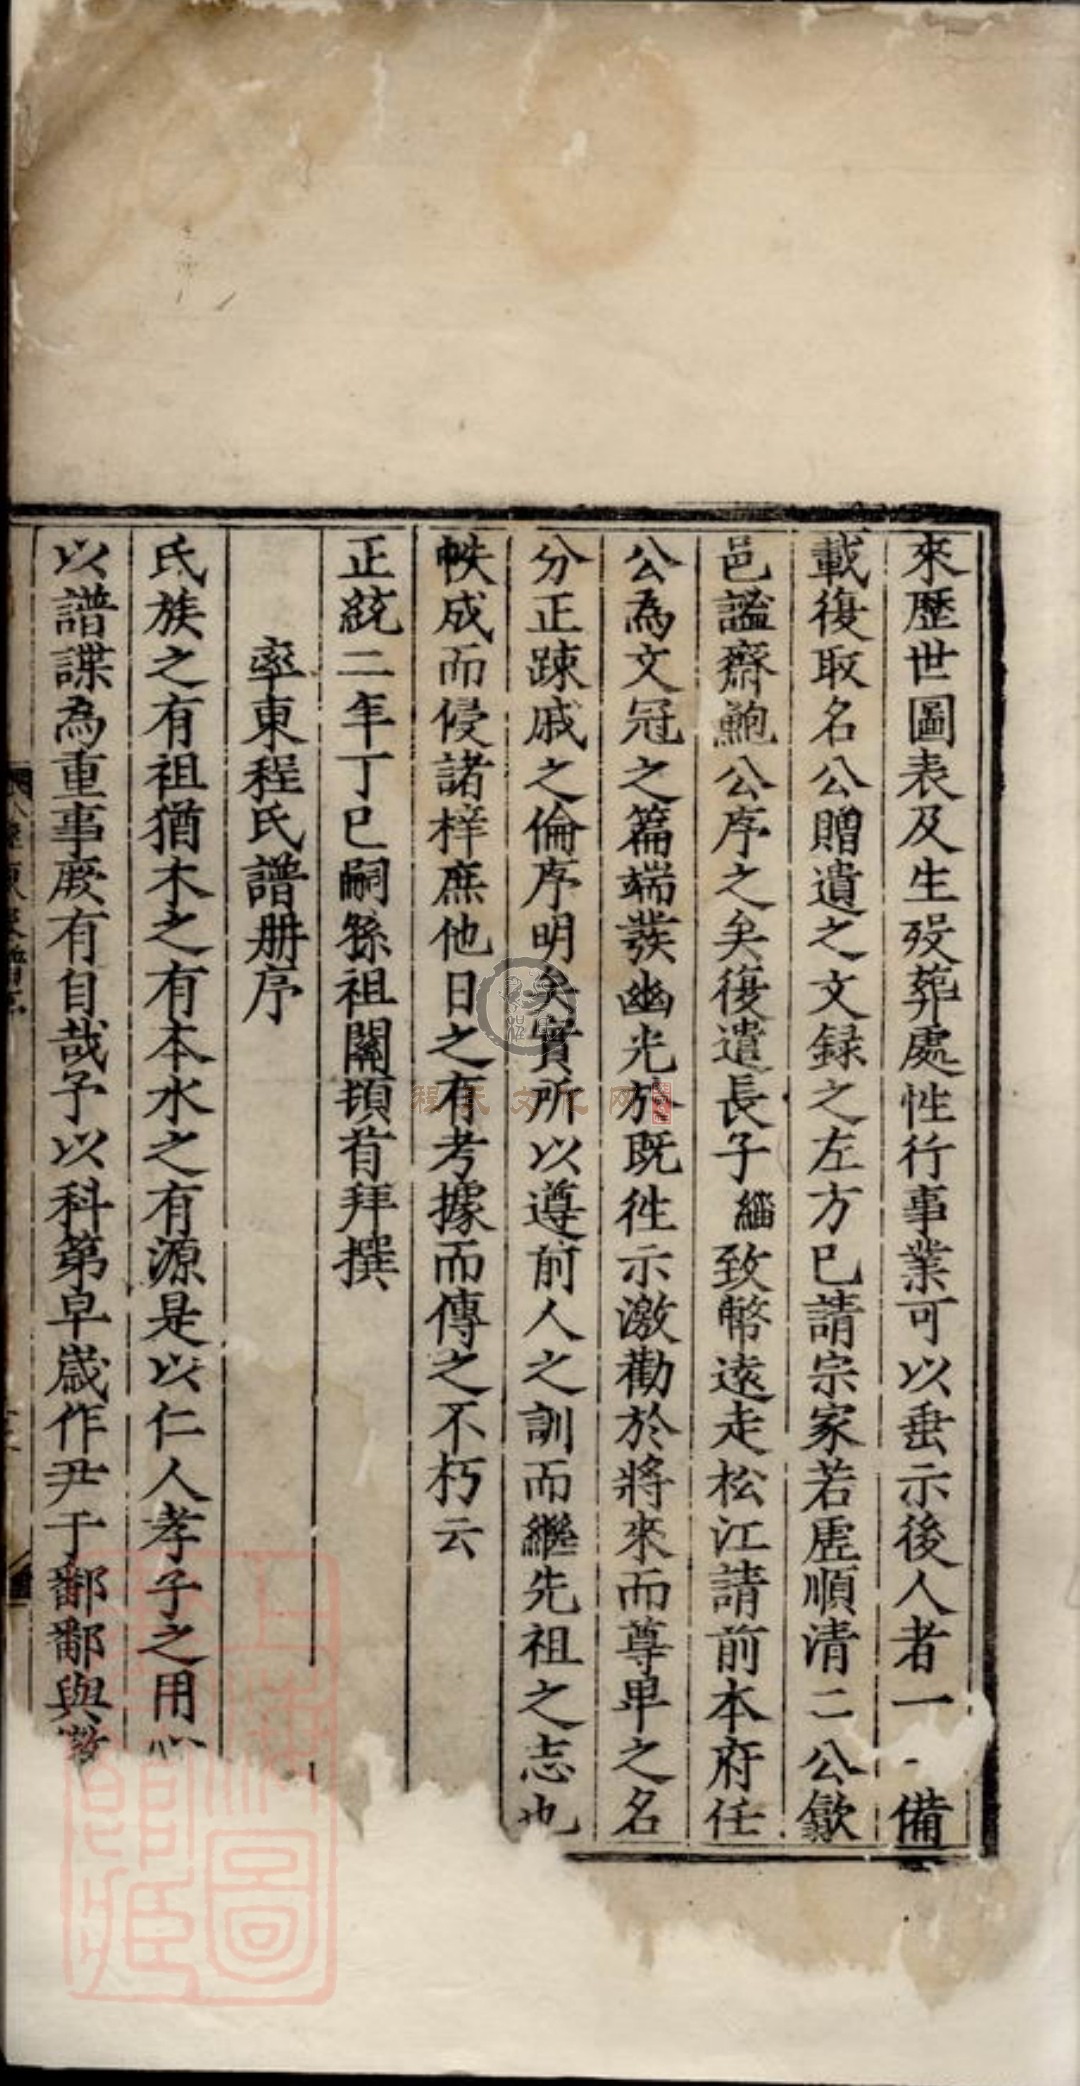 來歷世圖表及生歿葬處性行事業可以垂示後人者一一備
載復取名公贈遺之文録之左方巳請宗家若虛順清二公歙
邑謐齋鮑公序之矣復遣長子緇致幣遠走松江請前本府任
公為文冠之篇端發幽光於既徃示激勸於將來而尊卑之名
分正踈戚之倫序明矣實所以遵前人之訓而繼先祖之志也
帙成而侵諸梓庶他日之有考據而傳之不朽云
正統二年丁巳嗣孫祖關頓首拜撰
率東程氏譜册序
氏族之有祖猶木之有本水之有源是以仁人孝子之用心
以譜諜為重事厥有自哉予以科第早歲作尹于鄱鄱與
程氏文化网
上海圖